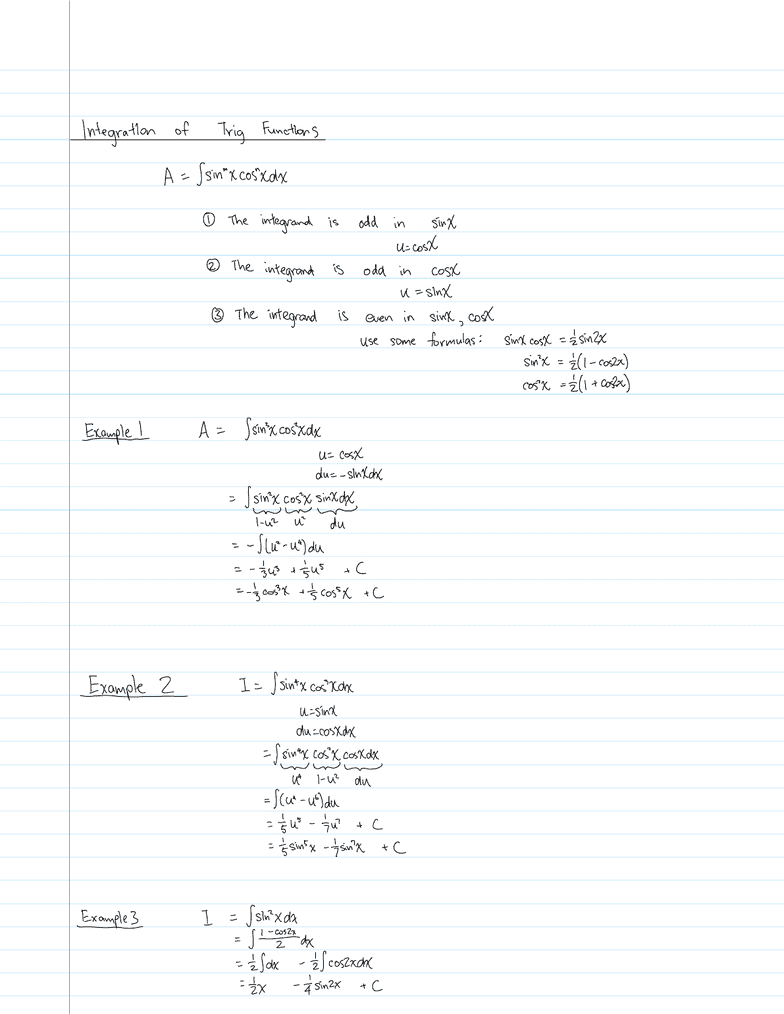 Integration of Trig Functions
A = ∫sinᵐx cosⁿx dx
① The integrand is odd in sinx
u=cosx
② The integrand is odd in cosx
u = sinx
③ The integrand is even in sinx, cosx
use some formulas: sinx cosx = 1/2 sin2x
sin²x = 1/2(1-cos2x)
cos²x = 1/2(1+cos2x)
Example 1 A = ∫sin³x cos²x dx
u= cosx
du=-sinxdx
= ∫sin²x cos²x sinxdx
1-u² u² du
= -∫(u²-u⁴)du
= -1/3u³ + 1/5u⁵ + C
= -1/3 cos³x + 1/5 cos⁵x + C
Example 2 I = ∫sin⁴x cos³x dx
u=sinx
du=cosxdx
= ∫sin⁴x cos²x cosxdx
u⁴ 1-u² du
= ∫(u⁴-u⁶)du
= 1/5u⁵ - 1/7u⁷ + C
= 1/5sin⁵x - 1/7sin⁷x + C
Example 3 I = ∫sin²x dx
= ∫(1-cos2x)/2 dx
= 1/2∫dx - 1/2∫cos2xdx
= 1/2x - 1/4sin2x + C